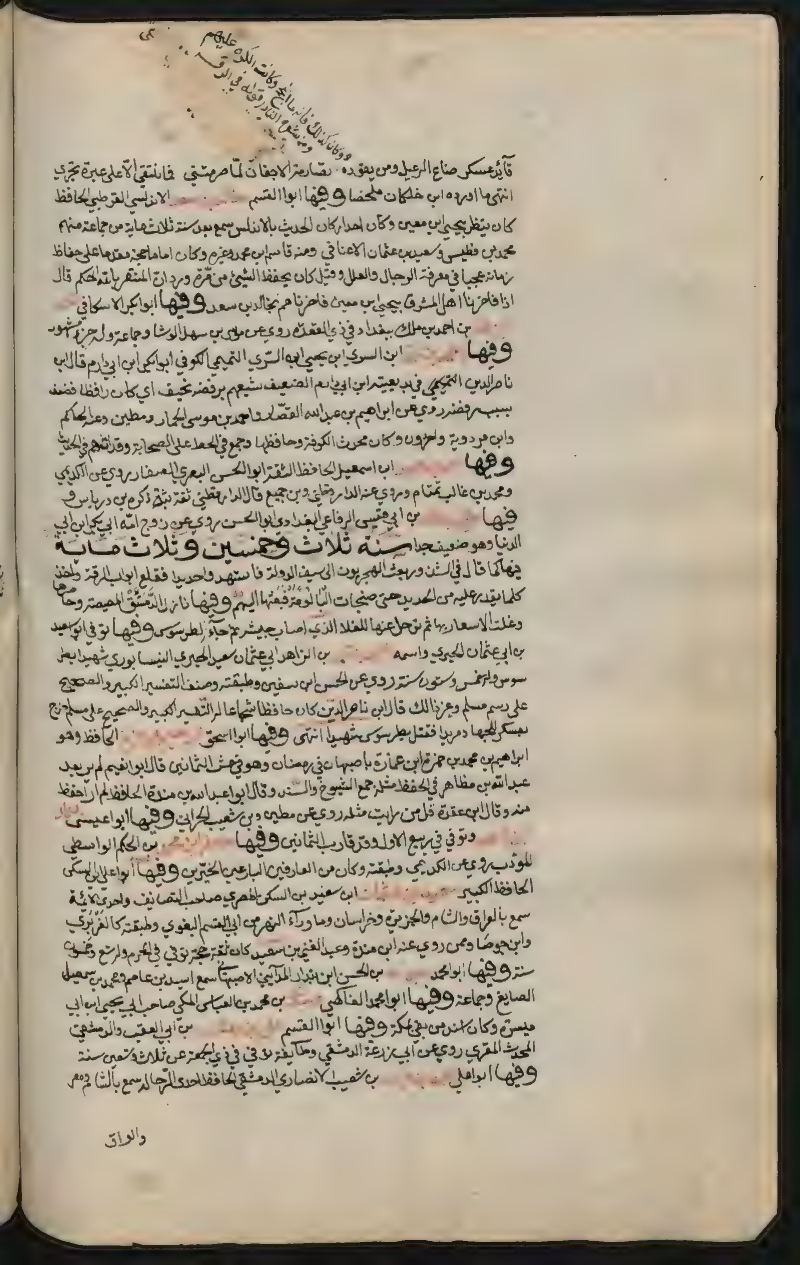 ووكان كذلك فإنه ما أنجح وكانت الكره عليهم
قايد عسكر ضاع الرعيل ومن يقوده
انتهى ما اورده ابن خلكان ملخصا وفيها ابوا القسم الاندلسي القرطبي الحافظ
كان ينظر بيحيى ابن معين وكان احد اركان الحديث بالاندلس سمع بعد سنة ثلاث ماية من جماعة منهم
محمد بن فطيس وسعيد بن عثمان الاعناقي ومنه قاسم ابن محمد وغيره وكان اماما حجة مقدما على حفاظ
زمانه عجبا في معرفة الرجال والعلل وقيل كان يحفظ الشيئ من مرة وورد ان المنتصر بالله الحكم قال
اذا فاخرنا اهل المشرق بيحيى بن معين فاخرناهم بخالد بن سعد وفيها ابوا بكر الاسكافي
بن احمد بن ملك ببغداد في ذي القعدة روى عن موسى بن سهل الوشا وجماعة وله جزء مشهور
وفيها ابن السري ابن يحيى ابن السري التميمي الكوفي ابوا بكر ابن ابي دارم قال ابن
ناصر الدين في بديعيته ابن ابي دارم الضعيف شيعهم برفضه نحيف اي كان رافظا فضعف
بسبب رفضه روى عن ابراهيم بن عبد الله القصار واحمد بن موسى الحمار ومطين وعنه الحاكم
وابن مردوية واخرون وكان محدث الكوفة وحافظها وجمع في الحط على الصحابة وقد اتهم في الحديث
وفيها ابن اسمعيل الحافظ الثقة ابوا الحسن البصري الصفار روى عن الكديمي
ومحمد بن غالب تمتام وروى عنه الدارقطني وبن جميع قال الدارقطني ثقة ثبت ذكره بن درباس و
فيها بن ابي قتيس الرفاعي البغدادي ابوا الحسن روى عن زوج امه ابي بكر ابن ابي
الدنيا وهو ضعيف جدا سنة ثلاث وخمسين وثلاث ماية
فيها كما قال في الشذور بعث الهجريون الى سيف الدولة فاستهد واحديدا فقلع ابواب الرقة واخذ
كلما يقدر عليه من الحديد حتى صنجات الباعة فبعثها اليهم وفيها نازل الدمستق المصيصة وحاصرها
وغلت الاسعار بها ثم ترحل عنها للغلاء الذي اصاب جيشه ثم جاء لطرسوس وفيها توفي ابو سعيد
بن ابي عثمان الحيري واسمه بن الزاهد ابي عثمان سعيد الحيري النيسابوري شهيدا بطر
سوس وله خمس وستون سنة روى عن الحسن ابن سفين وطبقته وصنف التفسير الكبير والصحيح
على رسم مسلم وغير ذالك قال ابن ناصر الدين كان حافظا شجاعا له التفسير الكبير والصحيح على مسلم خرج
بعسكر للجهاد مريدا فقتل بطرسوس شهيدا انتهى وفيها ابوا اسحق الحافظ وهو
ابراهيم بن محمد بن حمزة ابن عمارة باصبهان في رمضان وهو في عشر الثمانين قال ابوا نعيم لم ير بعد
عبد الله بن مظاهر في الحفظ مثله جمع الشيوخ والسند وقال ابوا عبد الله بن مندة الحافظ لم ار احفظ
منه وقال ابن عقدة قل من رايت مثله روى عن مطين وبن شعيب الحراني وفيها ابوا عيسى بكار
وتوفي في ربيع الاول وقد قارب الثمانين وفيها بن الحكم الواسطي
المؤدب روى عن الكديمي وطبقته وكان من العارفين البارعين الخيرين وفيها ابوا علي بن السكن
الحافظ الكبير ابن سعيد بن السكن المصري صاحب التصانيف واحد الائمة
سمع بالعراق والشام والجزيرة وخراسان وما وراء النهر من ابي القسم البغوي وطبقته كالفربري
وابن جوصا وممن روى عنه ابن مندة وعبد الغني بن سعيد كان ثقة حجة توفي في المحرم وله تسع وخمسون
سنة وفيها ابوا محمد بن الحسن ابن بندار المدايني الاصبهاني سمع اسيد بن عاصم ومحمد بن اسمعيل
الصايغ وجماعة وفيها ابوا محمد الفاكهي بن محمد بن العباس المكي صاحب ابي يحيى ابن ابي
ميسرة وكان اخر من بقي بمكة وفيها ابوا القسم بن ابي العقب الدمشقي
المحدث المقري روى عن ابي زرعة الدمشقي وطايفة توفي في ذي الحجة عن ثلاث وتسعين سنة
وفيها ابوا علي بن شعيب الانصاري الدمشقي الحافظ احد الرحالة سمع بالشام ومصر
والعراق